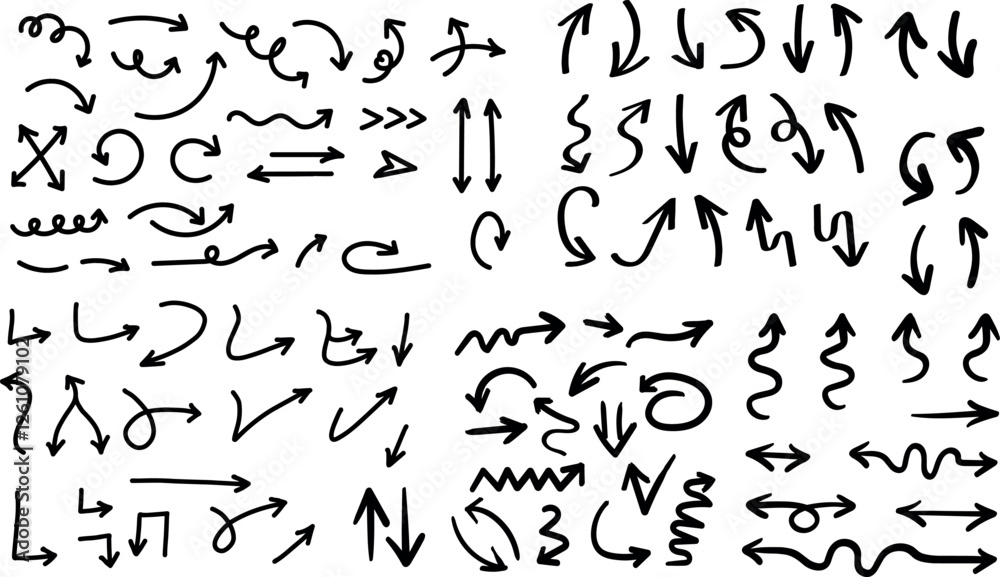 Adobe Stock | #1261079102